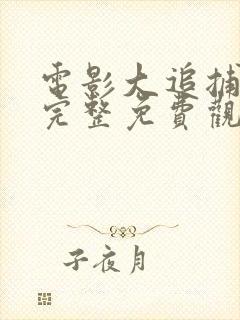 電影大追捕
完整免費觀
子夜月